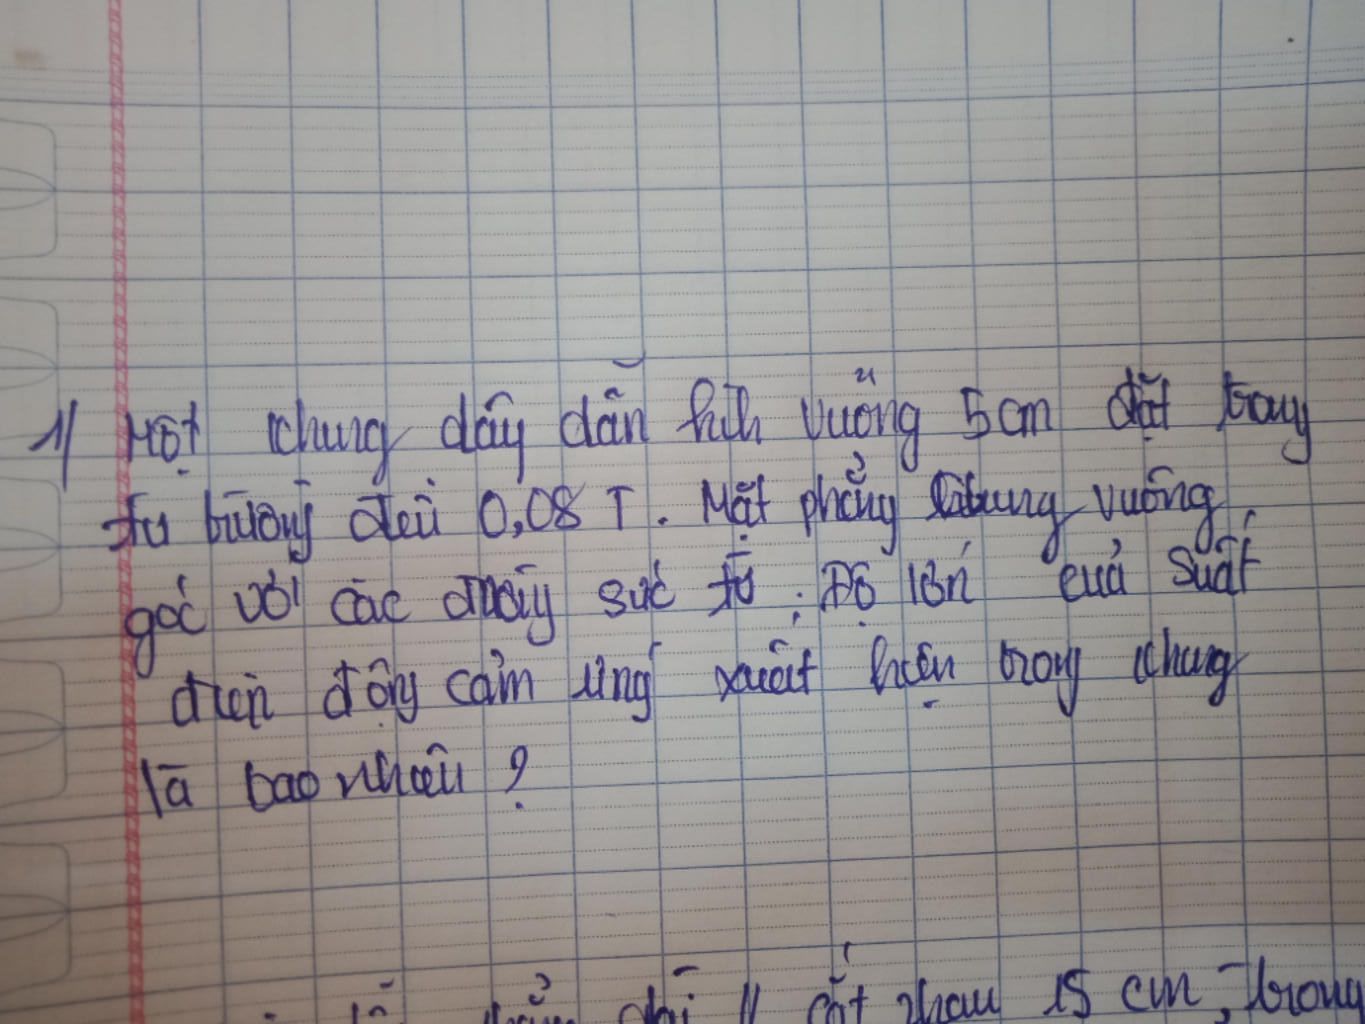 1/ Một khung dây dẫn hình vuông 5cm đặt trong
từ trường đều 0,08 T. Mặt phẳng khung vuông
góc với các đường sức từ. Độ lớn của suất
điện động cảm ứng xuất hiện trong khung
là bao nhiêu ?
dài // cắt nhau 15 cm, trong